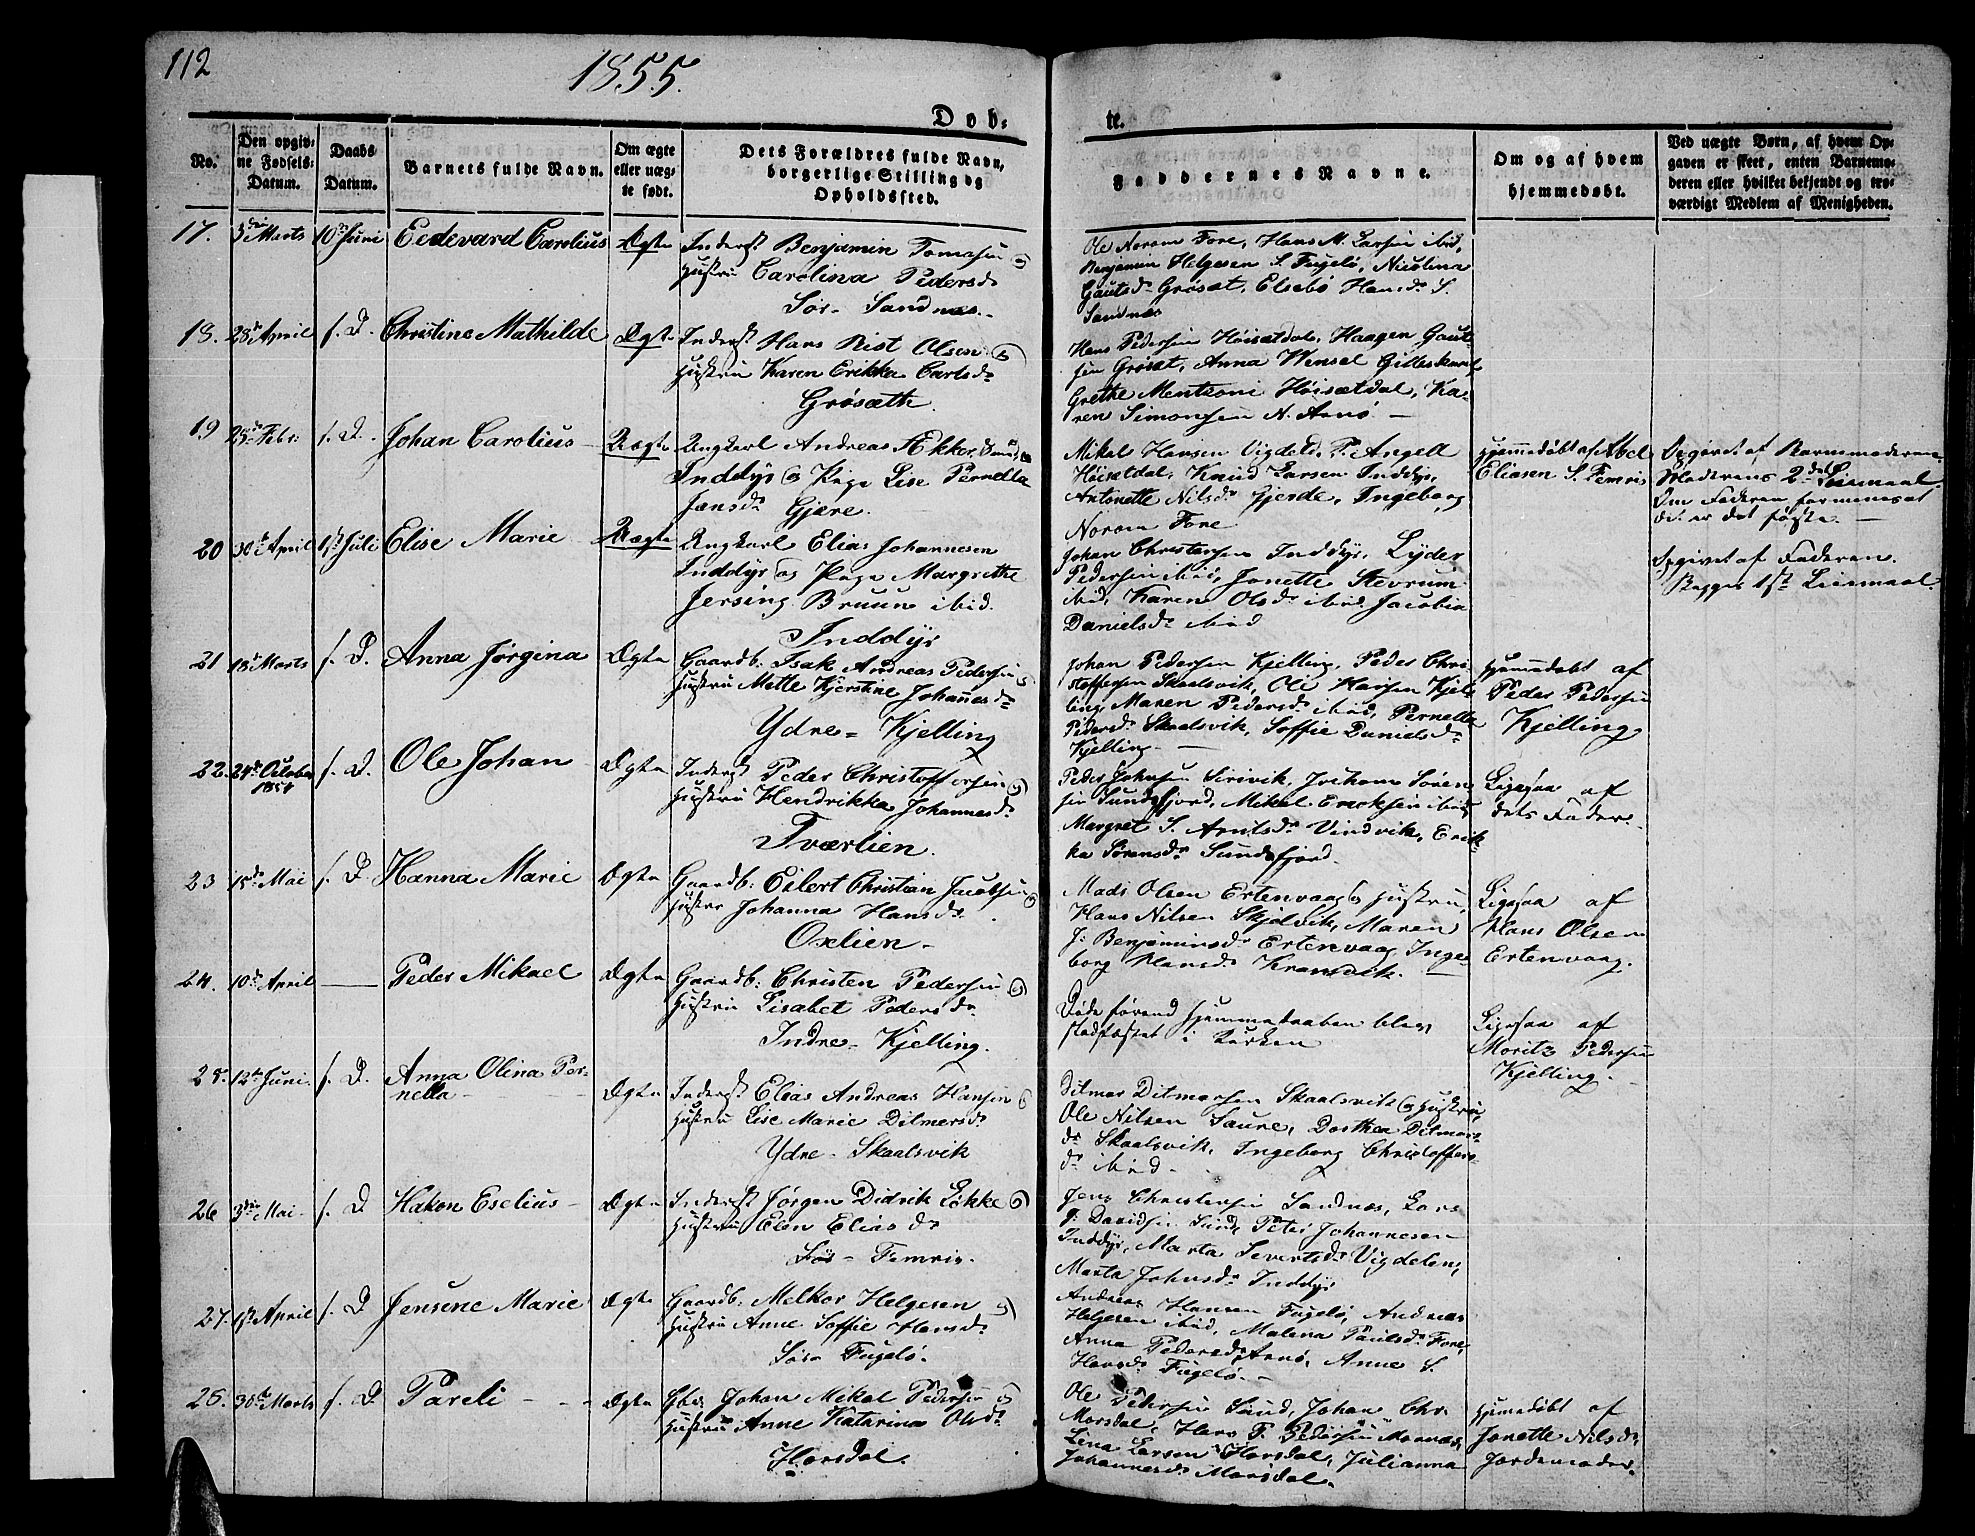 112
1855.
Døb-
te.
No.
Den opgiv-
ne Fødsels-
Datum.
Daabs
Datum.
Barnets fulde Navn.
Om ægte
eller uæg-
te født.
Dets Forældres fulde Navn,
borgerlige Stilling og
Opholdssted.
Faddernes Navne.
Om og af hvem
hjemmedøbt.
Ved uægte Børn, af hvem Op-
gaven er skeet, enten Barnemo-
deren eller hvilket bekjendt og tro-
værdigt Medlem af Menigheden.
17. 3die Marts 10de Juni Eedevard Carolius Ægte
Inderst Benjamin Tomasen og
Hustru Carolina Pedersd.
Sør-Sandnæs.
Ole Norom Fore, Hans M. Larsen ibid,
Benjamin Helgesen S. Fugelø, Nicolina
Gautsd. Grøsæt, Elsebø Hansd. S.
Sandnæs
18. 28de April s. D. Christine Mathilde Ægte
Inderst Hans Rist Olsen og
Hustru Karen Erikka Carlsd.
Grøsæth.
Hans Pedersen Høisætdal, Haagen Gaut-
sen Grøsæt, Anna Wensel Gilleskaal
Grethe Mentsoni Høisætdal, Ka-
ren Simonsen N. Arnø
19 25de Febr. s. D. Johan Carolius Uægte
Ungkarl Andreas Ækker,
Inddyr og Pige Lise Pernella
Jensd. Gjære.
Mikal Hansen Vigdel, P. Angell
Høisetdal, Knud Larsen Inddyr,
Antonette Nilsd. Gjerde, Ingeborg
Norom Fore
Hjemmedøbt af Abel
Eliasen S. Femris
Opgivet af Barnemoderen.
Moderens 2det Leiermaal
Om Faderen formenes at
det er det første.
20 30de April 1ste Juli Elise Marie Uægte
Ungkarl Elias Johannesen
Inddyr og Pige Margrethe
Jersing Bruun ibid.
Johan Christensen Inddyr, Lyder
Pedersen ibid, Jonette Stevrum
ibid, Karen Olsd. ibid. Jacobia
Danielsd. ibid
Opgivet af Faderen.
Begges 1ste Leiermaal.
21 18de Marts s. D. Anna Jørgina Ægte
Inddyr
Gaardb. Isak Andreas Pedersen og
Hustru Mette Kjerstine Johannesd.
Ydre-Kjelling
Johan Pedersen Kjelling, Peder Chri-
stoffersen Skaalsvik, Ole Hansen Kjel-
ling, Maren Pedersd. ibid, Pernella
Pedersd. Skaalsvik, Soffie Danielsd.
Kjelling
Hjemmedøbt af
Peder Pedersen
Kjelling
22. 24de October
1854 s. D. Ole Johan Ægte
Inderst Peder Christoffersen og
Hustru Hendrikka Johannesd.
Tværlien.
Peder Johnsen Sirivik, Jochom Søren-
sen Sundsfjord, Mikal Ericksen ibid,
Margret S. Arntsd. Vindvik, Erik-
ka Sørensd. Sundsfjord.
Ligesaa af
dets Fader.
23 15de Mai s. D. Hanna Marie Ægte
Gaardb. Eilert Christian Jacobsen og
Hustru Johanna Hansd.
Oxlien
Mads Olsen Ertenvaag og Hustru,
Hans Nilsen Skjelvik, Maren
J. Benjaminsd. Ertenvaag, Inge-
borg Hansd. Kransvik.
Ligesaa af
Hans Olsen
Ertenvaag.
24. 10de April Peder Mikael Ægte
Gaardb. Christen Pedersen og
Hustru Lisabet Pedersd.
Indre-Kjelling.
Døde førend Hjemmedaaben blev
stadfæstet i Kirken
Ligesaa af
Moritz Pedersen
Kjelling.
25. 12te Juni s. D. Anna Olina Per-
nella Ægte
Inderst Elias Andreas Hansen og
Hustru Lise Marie Ditmersd.
Ydre-Skaalsvik
Ditmar Ditmarsen Skaalsvik og Hustru,
Ole Nilsen Saure, Dorthea Ditmars-
d. Skaalsvik, Ingeborg Christoffers-
d. ibid
26 3die Mai s. D Hakon Eselius Ægte
Inderst Jørgen Didrik Løkke og
Hustru Elen Eliasd.
Sør-Femris.
Jens Christensen Sandnæs, Lars
P. Davidsen Sund, Peter Johannesen
Inddyr, Marta Severtsd. Vigdelen,
Marta Johnsd. Inddyr
27. 1ste April s. D Jensine Marie Ægte
Gaardb. Melkor Helgesen og
Hustru Anne Soffie Hansd.
Sør Fugelø.
Andreas Hansen Fugelø, Andreas
Helgesen ibid, Malena Paulsd. Fore,
Anna Pedersd. Arnø, Anne S.
Hansd. Fugelø.
28. 30te Marts s. D Pareli Ægte
Gbr. Johan Mikal Pedersen og
Hustru Anne Katarina Olsd.
Horsdal.
Ole Pedersen Sund, Johan Chr.
Morsdal, Hans P. Pedersen Mornæs,
Lena Larsen Horsdal, Julianna
Johannesd. Morsdal.
Hjemmedøbt af
Jonette Nilsd.
Jordemoder.